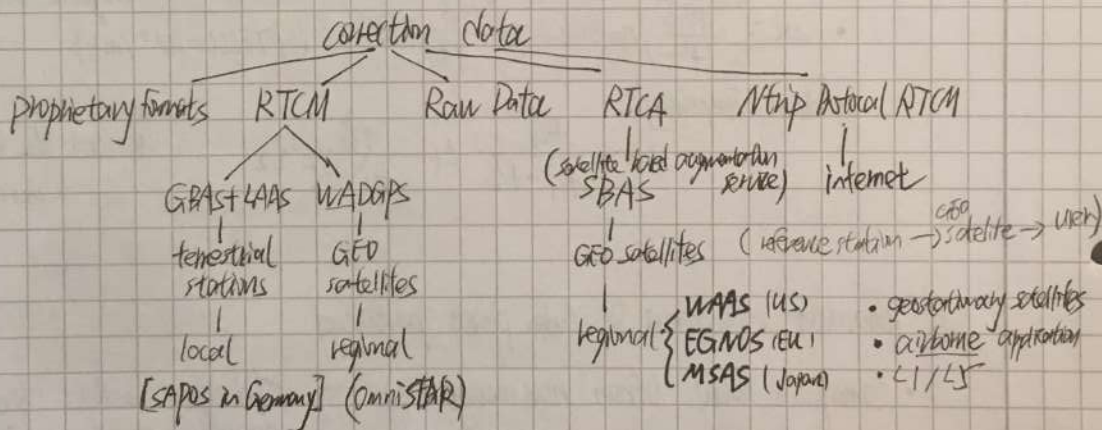 correction data
Proprietary formats RTCM Raw Data RTCA Ntrip Protocal RTCM
(satellite based augmentation service)
GBAS+LAAS WADGPS SBAS internet
terrestrial stations GEO satellites GEO satellites (reference station → GEO satelite → user)
local regional regional { WAAS (US) • geostationary satellites
EGNOS (EU) • airborne application
MSAS (Japan) • L1/L5
[SAPOS in Germany] (OmniSTAR)